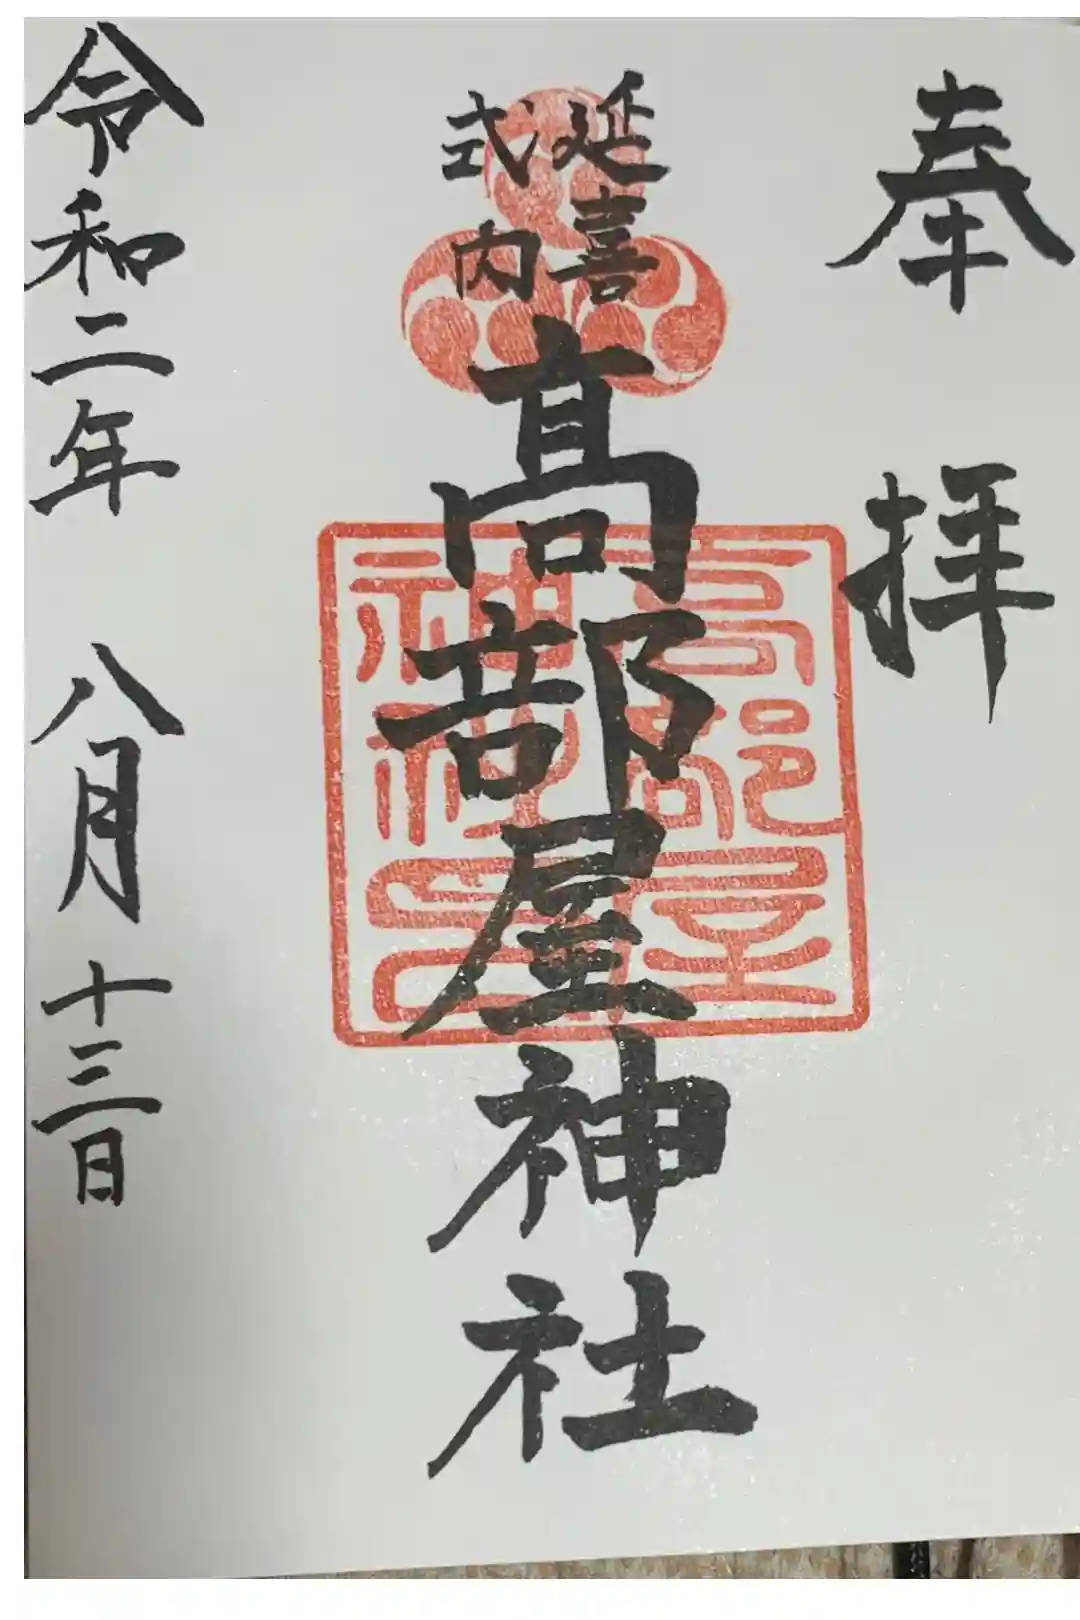 奉拝
延喜
式内
髙部屋神社
高部屋
神社之印
令和二年 八月十三日